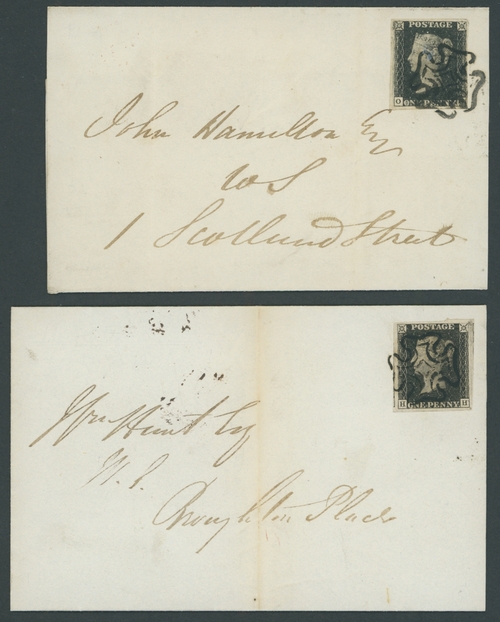 POSTAGE
O
ONE PENNY
John Hamilton Esq
WS
1 Scotland Street
POSTAGE
H
ONE PENNY
H
Wm Hunt Esq
W.S.
Broughton Place